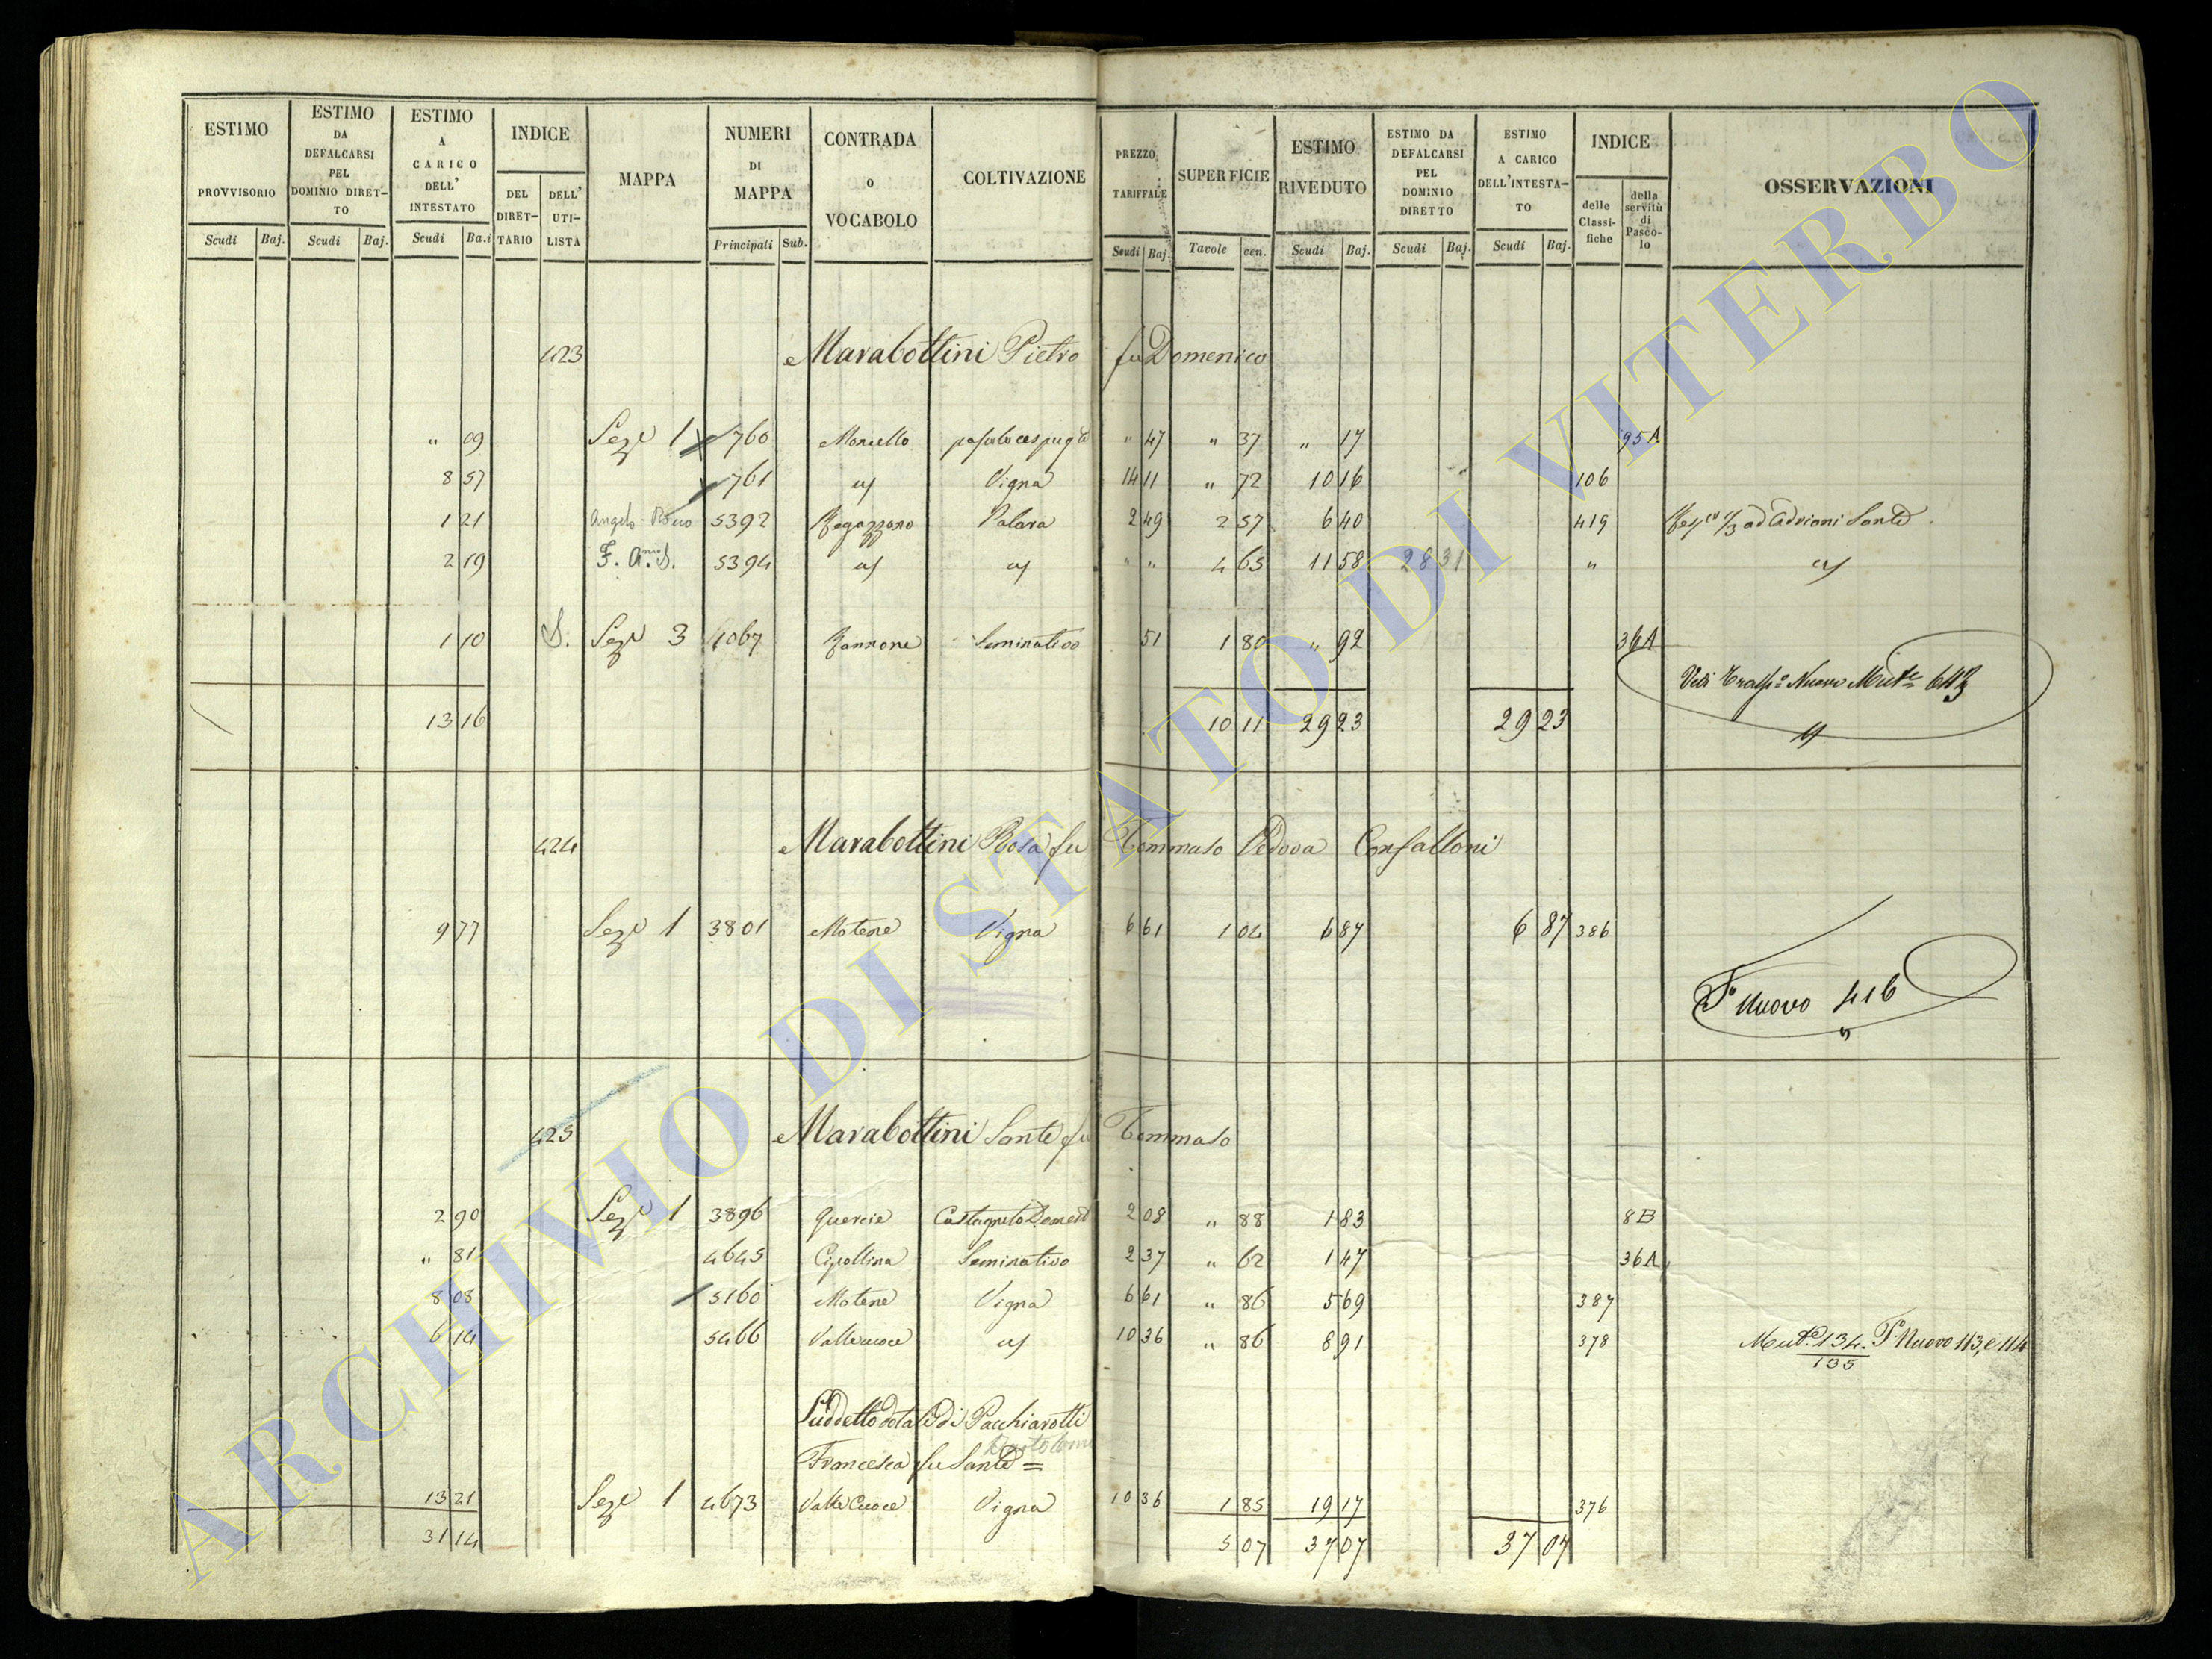 ESTIMO PROVVISORIO Scudi Baj.
ESTIMO DA DEFALCARSI PEL DOMINIO DIRET- TO Scudi Baj.
ESTIMO A CARICO DELL' INTESTATO Scudi Ba.i
INDICE DEL DIRET- TARIO DELL' UTI- LISTA
MAPPA
NUMERI DI MAPPA Principali Sub.
CONTRADA O VOCABOLO
COLTIVAZIONE
PREZZO TARIFFALE Scudi Baj.
SUPERFICIE Tavole cen.
ESTIMO RIVEDUTO Scudi Baj.
ESTIMO DA DEFALCARSI PEL DOMINIO DIRETTO Scudi Baj.
ESTIMO A CARICO DELL'INTESTA- TO Scudi Baj.
INDICE delle Classi- fiche della servitù di Pasco- lo
OSSERVAZIONI
423 Marabottini Pietro fu Domenico
" 09 Seze 1 760 Moncello " 47 " 37 " 17 95A
8 57 761 " Vigna 14 11 " 72 10 16 106
1 21 Angelo 5392 Ragazzano Palara 2 49 2 57 6 40 419 1/3 ad Adriani Sante
2 19 5394 " " " " 4 65 11 58 28 31 " "
1 10 S. Seze 3 1067 Zannone Seminativo 51 1 80 " 92 36A
Vedi Nuovo 643
13 16 10 11 29 23 29 23
424 Marabottini Rosa fu Tommaso Vedova Confalloni
9 77 Seze 1 3801 Motene Vigna 6 61 1 04 6 87 6 87 386
Nuovo 416
425 Marabottini Sante fu Tommaso
2 90 Seze 1 3896 Quercie Castagneto Domest 2 08 " 88 1 83 8B
" 81 4645 Cipollina Seminativo 2 37 " 62 1 47 36A
8 08 5160 Motene Vigna 6 61 " 86 5 69 387
6 14 5466 Vallecuoce " 10 36 " 86 8 91 378 Mute 134. P. Nuovo 113, e 114
135
Suddetto dotale di Pacchiarotti
Francesca fu Sante =
13 21 Seze 1 4673 Valle Cuoce Vigna 10 36 1 85 19 17 376
31 14 5 07 37 07 37 07
ARCHIVIO DI STATO DI VITERBO